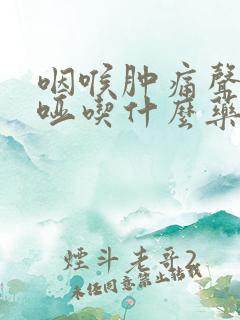 咽喉肿痛聲
哑喫什麼藥
煙斗老哥2
未经同意禁止转载